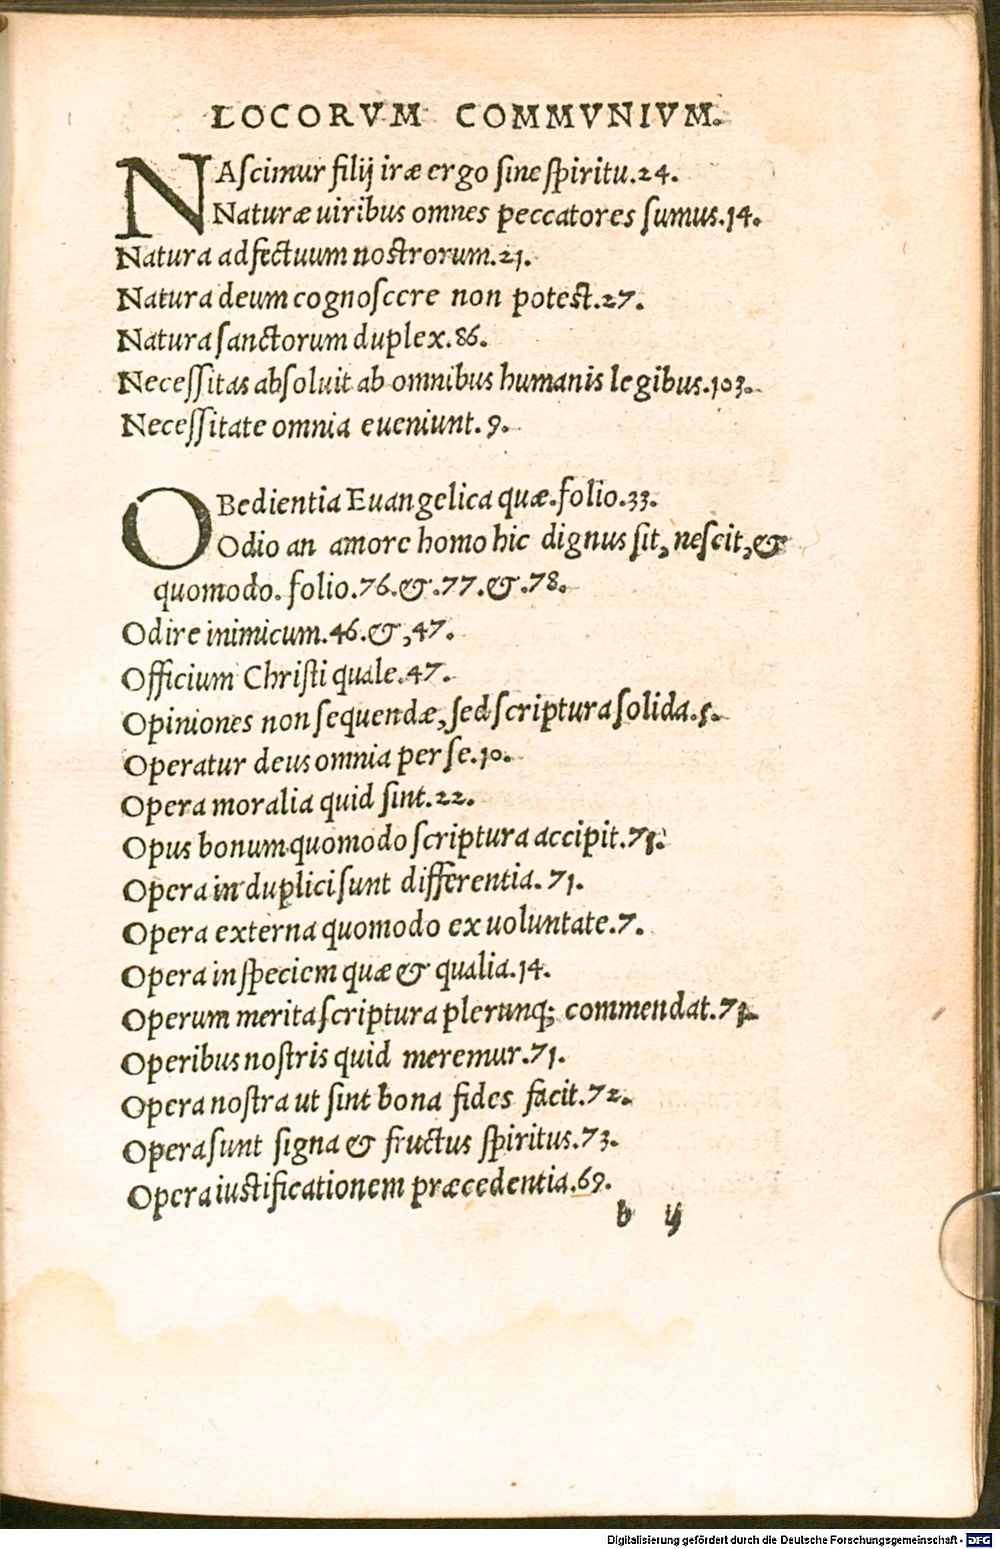 LOCORVM COMMVNIVM.
NAſcimur filij iræ ergo ſine ſpiritu.24.
Naturæ uiribus omnes peccatores ſumus.14.
Natura adfectuum noſtrorum.21.
Natura deum cognoſcere non poteſt.27.
Natura ſanctorum duplex.86.
Neceſſitas abſoluit ab omnibus humanis legibus.103.
Neceſſitate omnia eueniunt. 9.
OBedientia Euangelica quæ.folio.33.
Odio an amore homo hic dignus ſit, neſcit, &
quomodo. folio.76.&.77.&.78.
Odire inimicum.46.&,47.
Officium Chriſti quale.47.
Opiniones non ſequendæ, ſed ſcriptura ſolida.5.
Operatur deus omnia per ſe.10.
Opera moralia quid ſint.22.
Opus bonum quomodo ſcriptura accipit.71.
Opera in duplici ſunt differentia. 71.
Opera externa quomodo ex uoluntate.7.
Opera in ſpeciem quæ & qualia.14.
Operum merita ſcriptura plerunq; commendat.71.
Operibus noſtris quid meremur.71.
Opera noſtra ut ſint bona fides facit.72.
Opera ſunt ſigna & fructus ſpiritus.73.
Opera iuſtificationem præcedentia.69.
b ij
Digitalisierung gefördert durch die Deutsche Forschungsgemeinschaft - DFG